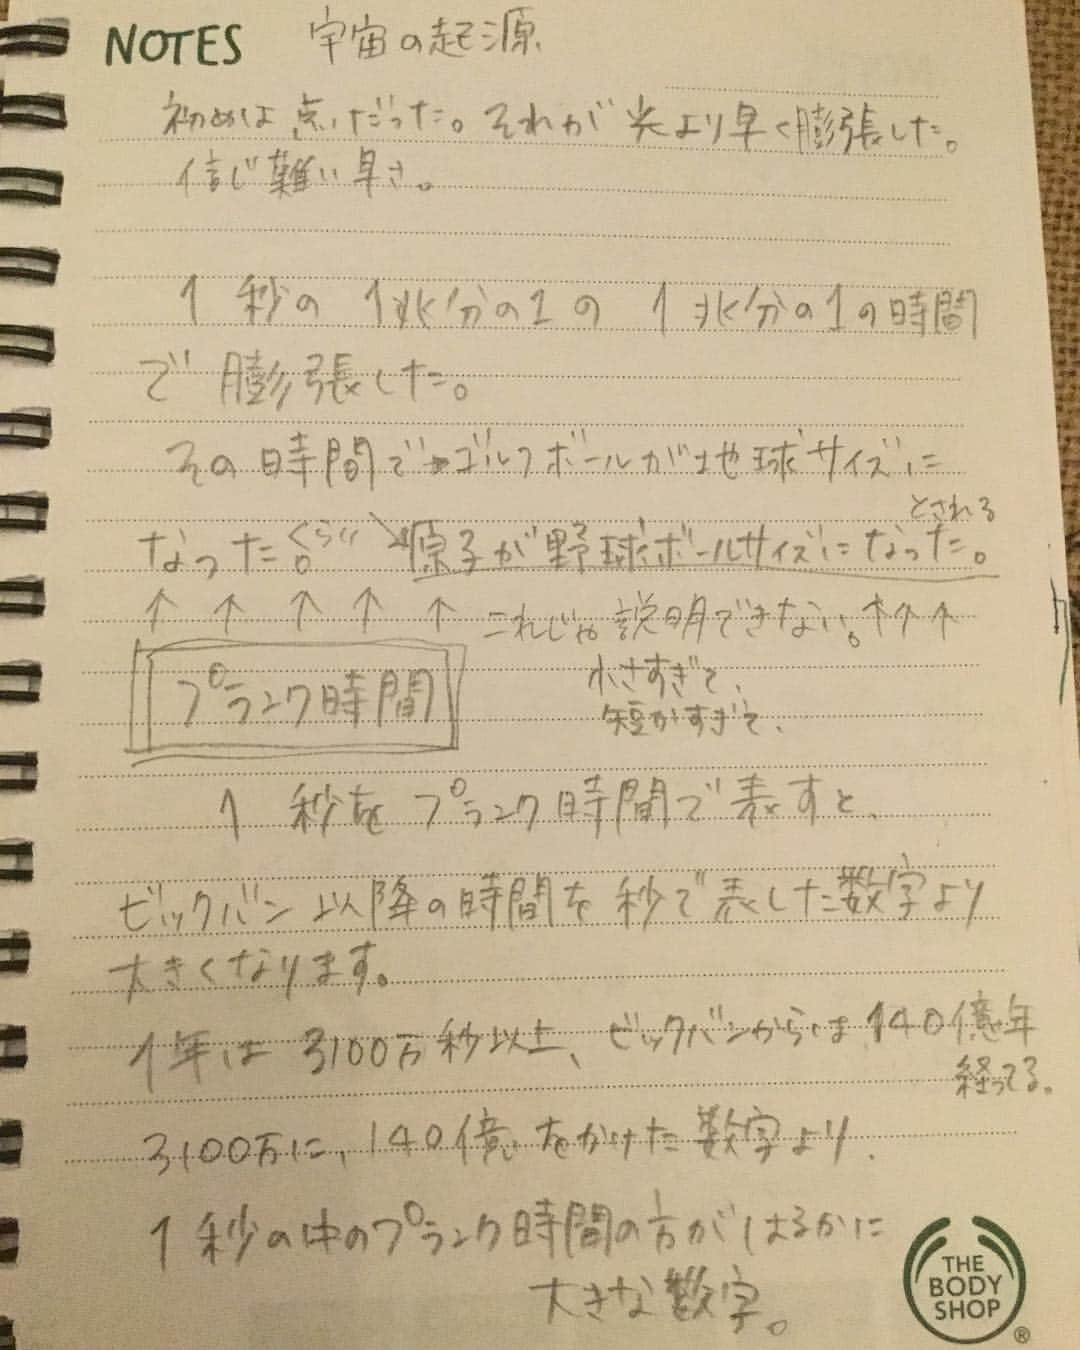 NOTES 宇宙の起源
初めは点だった。それが光より早く膨張した。
信じ難い早さ。
1秒の1兆分の1の1兆分の1の時間
で膨張した。
その時間でゴルフボールが地球サイズに
とされる
なったくらい。原子が野球ボールサイズになった。
↑ ↑ ↑ ↑ ↑ これじゃ説明できない。↑↑↑
小さすぎて、
プランク時間
短かすぎて、
1秒をプランク時間で表すと、
ビックバン以降の時間を秒で表した数字より
大きくなります。
1年は3100万秒以上、ビックバンからは140億年
経ってる。
3100万に、140億をかけた数字より、
1秒の中のプランク時間の方がはるかに
大きな数字。
THE
BODY
SHOP
®